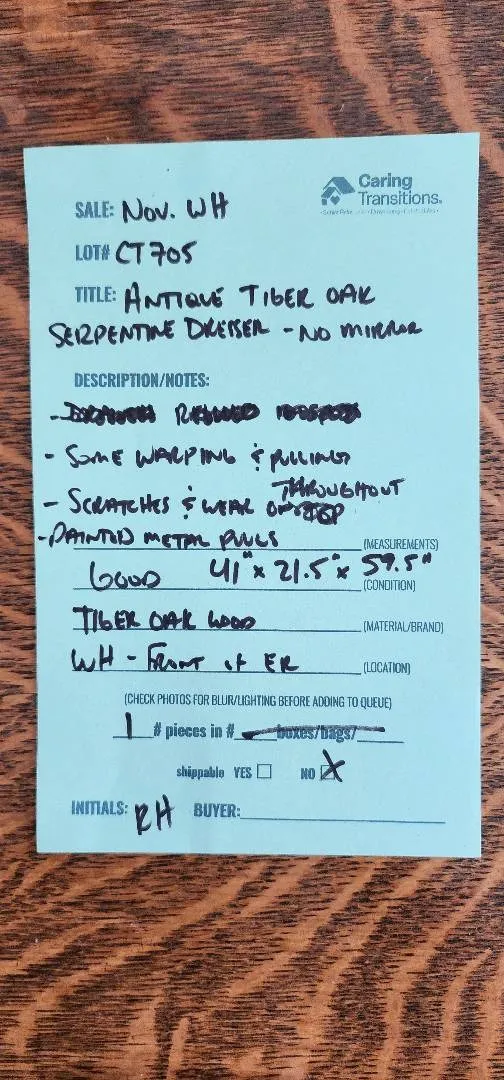 Caring
Transitions®
SALE: Nov. WH
LOT# CT705
TITLE: ANTIQUE TIGER OAK
SERPENTINE DRESSER - NO MIRROR
DESCRIPTION/NOTES:
- SOME WARPING & PULLING
- SCRATCHES & WEAR THROUGHOUT
- PAINTED METAL PULLS (MEASUREMENTS)
GOOD 41" x 21.5" x 59.5" (CONDITION)
TIGER OAK WOOD (MATERIAL/BRAND)
WH - FRONT OF ER (LOCATION)
(CHECK PHOTOS FOR BLUR/LIGHTING BEFORE ADDING TO QUEUE)
1 # pieces in # boxes/bags/
shippable YES NO X
INITIALS: RH BUYER: